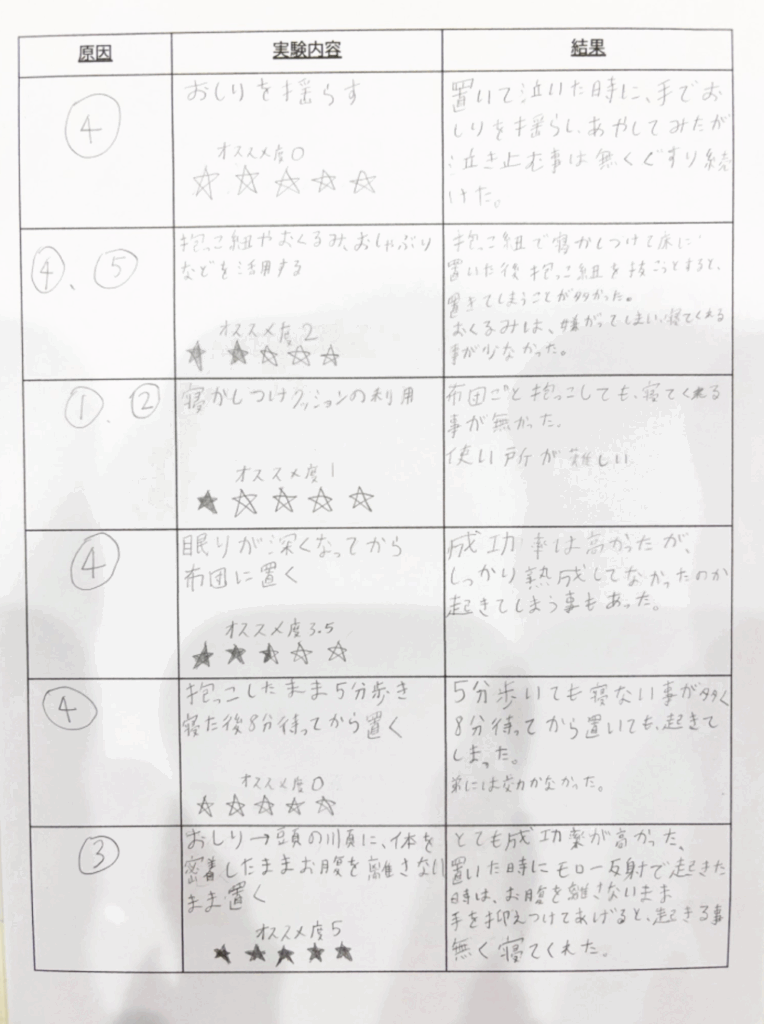 原因
実験内容
結果
④
おしりを揺らす
オススメ度0
☆☆☆☆☆
置いて泣いた時に、手でお
しりを揺らし、あやしてみたが
泣き止む事は無くぐずり続
けた。
④、⑤
抱っこ組やおくるみ、おしゃぶり
などを活用する
オススメ度2
★★☆☆☆
抱っこ組で寝かしつけて床に
置いた後抱っこ組を抜こうとすると、
起きてしまうことが多かった。
おくるみは、嫌がってしまい寝てくれる
事が少なかった。
①、②
寝かしつけクッションの利用
オススメ度1
★☆☆☆☆
布団ごと抱っこしても、寝てくれる
事が無かった。
使い所が難しい
④
眠りが深くなってから
布団に置く
オススメ度3.5
★★★☆☆
成功率は高かったが、
しっかり熟成してなかったのか
起きてしまう事もあった。
④
抱っこしたまま5分歩き
寝た後8分待ってから置く
オススメ度0
☆☆☆☆☆
5分歩いても寝ない事が多く
8分待ってから置いても、起きて
しまった。
弟には効かなかった。
③
おしり→頭の順に、体を
密着したままお腹を離さない
まま置く
オススメ度5
★★★★★
とても成功率が高かった、
置いた時にモロー反射で起きた
時は、お腹を離さないまま
手を抑えつけてあげると、起きる事
無く寝てくれた。